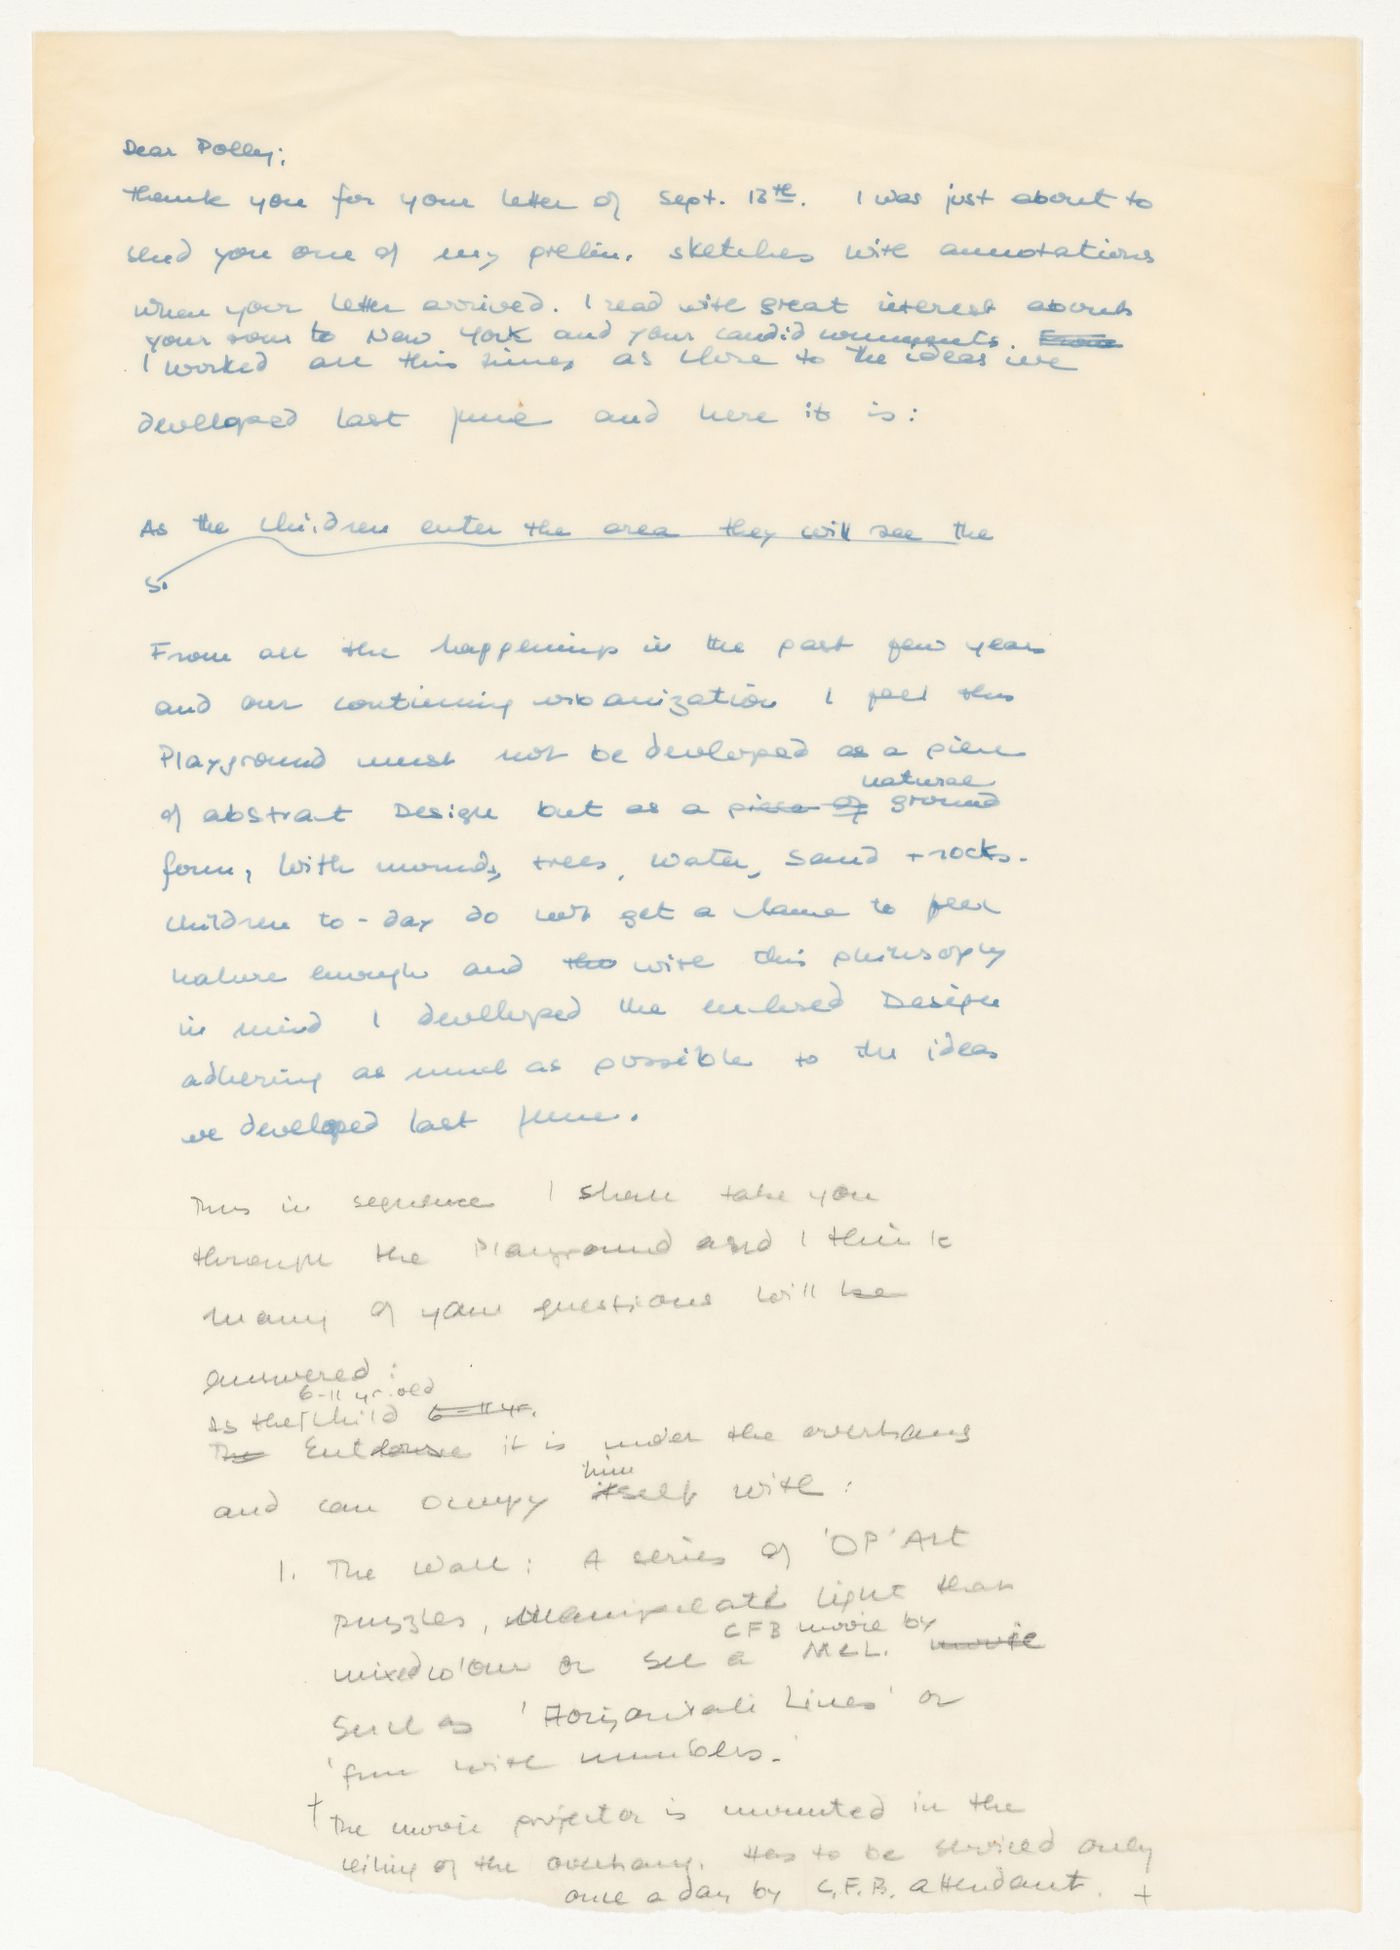 Dear Polly:
Thank you for your letter of Sept. 13th. I was just about to
send you one of my prelim. sketches with annotations
when your letter arrived. I read with great interest about
your tour to New York and your candid comments.
I worked all this time, as close to the ideas we
developed last June and here it is:
As the children enter the area they will see the
So
From all the happenings in the past few years
and our continuing urbanization I feel this
Playground must not be developed as a piece
natural
of abstract Design but as a piece of ground
form, with mounds, trees, water, sand + rocks.
Children to-day do not get a chance to feel
nature enough and the with this philosophy
in mind I developed the enclosed Design
adhering as much as possible to the ideas
we developed last June.
Thus in sequence I shall take you
through the Playground and I think
many of your questions will be
answered:
6-11 yr. old
As the child 6-11 yr.
The Entrance it is under the overhang
him
and can occupy itself with:
1. The Wall: A series of 'OP' Art
puzzles, manipulate light than
CFB movie by
mixed colour or see a McL. movie
such as 'Horizontal Lines' or
'fun with numbers.'
+ The movie projector is mounted in the
ceiling of the overhang. Has to be serviced only
once a day by C.F.B. attendant. +